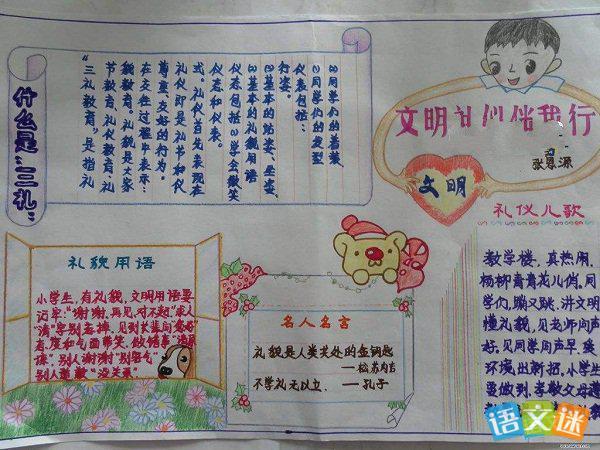 文明礼仪伴我行
张恩源
文明
什么是"三礼"
"三礼教育"是指礼
节教育、礼仪教育、礼
貌教育。礼貌是大家
在交往过程中表示
尊重、友好的行为。
礼仪即是礼节和仪
式。礼仪首先表现在
仪容和仪表。
仪态包括:(1)学会微笑
(2)基本的礼貌用语
(3)基本的站姿、坐姿、
行姿。
仪表包括:
(1)同学们的发型
(2)同学们的着装
礼貌用语
小学生,有礼貌,文明用语要
记牢:"谢谢,再见,对不起,"求人
"请"字别忘掉,见到长辈问您好
和气面带笑,做错事
别人谢谢"别客气"
别人道歉"没关系"
名人名言
礼貌是人类共处的金钥匙
——松苏内吉
不学礼无以立.——孔子
礼仪儿歌
教学楼,真热闹,
杨柳青青花儿俏。同
学们,蹦又跳,讲文明
懂礼貌,见老师问声
好。见同学问声早,爱
环境出新招,小学生
要做到,孝敬父母遵
语文迷